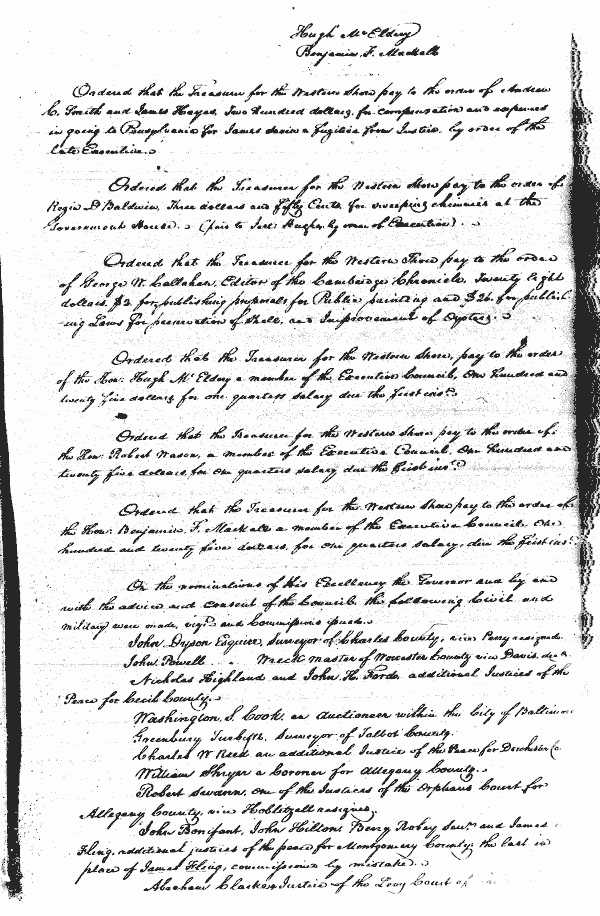 Hugh McEldery
Benjamin F. Mackall
Ordered that the Treasurer for the Western Shore pay to the order of Andrew
C. Smith and James Hayes, Two hundred dollars, for compensation and expenses
in going to Pennsylvania for James a fugitive from Justice, by order of the
late Executive.
Ordered that the Treasurer for the Western Shore pay to the order of
D Baldwin, Three dollars and fifty Cents, for sweeping chimnies at the
Government House. (paid to Hughes by order of Executive).
Ordered that the Treasurer for the Western Shore pay to the order
of George W. Callahan, Editor of the Cambridge Chronicle, Twenty Eight
dollars, $2 for publishing proposals for Public printing and $26, for publish-
-ing Laws for preservation of Shell, and Improvement of Oysters.
Ordered that the Treasurer for the Western Shore, pay to the order
of the Hon: Hugh McEldery a member of the Executive Council, One hundred and
twenty five dollars for one quarters salary due the first inst.
Ordered that the Treasurer for the Western Shore pay to the order of
the Hon: Robert Wason, a member of the Executive Council, One hundred and
twenty five dollars, for one quarters salary due the first inst.
Ordered that the Treasurer for the Western Shore pay to the order of
the Hon: Benjamin F. Mackall a member of the Executive Council, One
hundred and twenty five dollars, for one quarters salary, due the first inst
On the nominations of His Excellency the Governor and by and
with the advice and consent of the Council, the following Civil and
military were made, viz: and Commissions issued.
John Dyson Esquire, Surveyor of Charles County, vice Perry resigned
John Powell Wreck master of Worcester County vice Davis,
Nicholas Highland and John H. Ford, additional Justices of the
Peace for Cecil County.
Washington S. Cook, an Auctioneer within the City of Baltimore
Greenbury Turbutt, Surveyor of Talbot County.
Charles W Reed an additional Justice of the Peace for Dorchester Co
William Shryer a Coroner for Allegany County.
Robert Swann, one of the Justices of the Orphans Court for
Allegany County, vice Hoblitzell resigned.
John Bonifant, John Hilton, Berry Robey Senr. and James
Fling, additional justices of the peace for Montgomery County: the last in
place of James Fling, commissioned by mistake.
Abraham Clarke a Justice of the Levy Court of